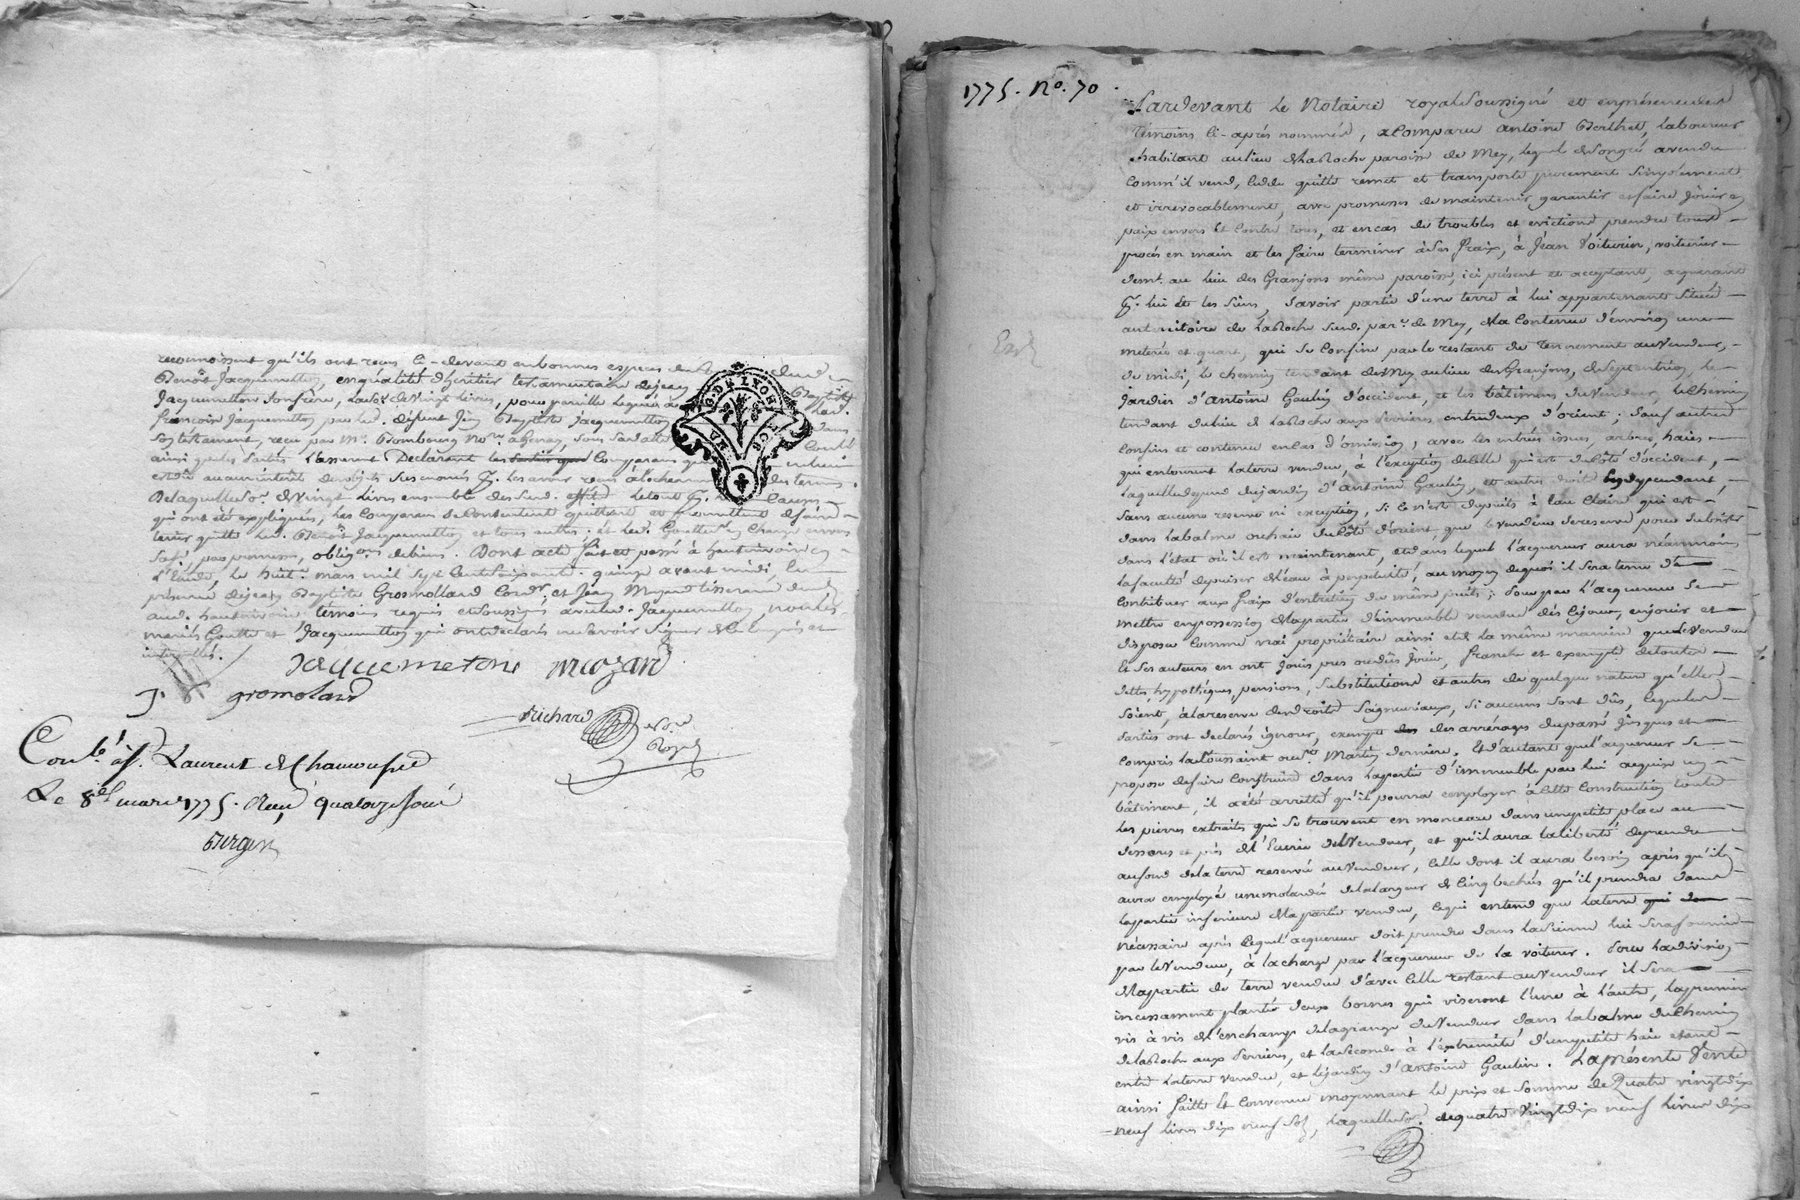 reconnoissent qu'ils ont reçu ci-devant en bonnes especes de
Benoît Jacquemetton, en qualité d'héritier testamentaire de jean Baptiste
Jacquemetton son frère, de vingt livres, pour pareille leguée à
françois Jacquemetton par led. défunt Jean Baptiste Jacquemetton dans
son testament, reçu par Me. Bombourg Nore.
ainsi que les parties l'assurent Declarant les
Delaquelle So. de vingt livres ensemble
qui ont été expliquées, les Comparans se contentent quittent et promettent de faire
tenir quitte led. Benoît Jacquemetton et tous autres
obligons. de biens. Dont acte fait et passé à hauterivoire en
l'Etude, le huit mars mil sept cent soixante-quinze avant midi, En
présence de jean Baptiste Gromollard et Jean tisserand
aud. hauterivoire, témoins requis et soussignés avec led. Jacquemetton,
mariés Goutte et Jacquemetton qui ont declaré ne savoir signer de ce enquis et
interpellés.
Jacquemetone mozard
J. B gromolard
Richard Nore. Royal
G. DE LYON
Conle. à St. Laurent de Chamousset
Le 8e. mars 1775. Reçu quatorze sous
Berger
1775. No. 70.
Pardevant Le Notaire royal Soussigné et en présence des
témoins ci-après nommés, a Comparu antoine Berthet, laboureur
habitant au lieu de la Roche paroisse de Mey, lequel de son gré a vendu
comm'il vend, cedde quitte remet et transporte purement simplement
et irrevocablement, avec promesses de maintenir garantir et faire jouir en
paix envers et contre tous, et en cas de troubles et eviction prendre tous
procès en main et les faire terminer à ses fraix, à Jean Voiturin, voiturier
demt. au lieu des Granjons même paroisse, ici présent et acceptant, acquerant
p. lui et les siens, Savoir partie d'une terre à lui appartenant située
au territoire de la Roche sud. par. de Mey, de la contenue d'environ une
meterée et quart, qui se confine par le restant du tenement au Vendeur,
de midi, le chemin tendant de Mey au lieu des Granjons, de Septentrion, le
jardin d'Antoine Gaulin d'occident, et les bâtimens du Vendeur, le Chemin
tendant du lieu de la Roche aux Verrieres entredeux d'orient; Sauf autres
confins et contenue en cas d'omission, avec les entrées issues, arbres, haies
qui entourent la terre vendue, à l'exception de celle qui est du côté d'occident,
laquelle depend du jardin d'Antoine Gaulin, et autres droits en dependant,
sans aucune reserve ni exception, Si ce n'est du puits à eau Claire qui est
dans la balme ou haie du côté d'orient, que le Vendeur se reserve pour subsister
dans l'état où il est maintenant, et dans lequel l'acquereur aura néanmoins
la faculté de puiser de l'eau à perpétuité, au moyen de quoi il sera tenu de
contribuer aux fraix d'entretien du même puits; Pour par l'acquereur se
mettre en possession de la partie d'immeuble vendue dès ce jour, en jouir et
disposer comme vrai propriétaire ainsi et de la même maniere que le Vendeur
et ses auteurs en ont jouis pu ou dû jouir, franche et exempte de toutes
dettes hypothéques, pensions, substitutions et autres de quelque nature qu'elles
soient, à la reserve des droits Seigneuriaux, si aucuns sont dûs, lesquels
Parties ont declarés ignorer, exempte des arrérages du passé jusques et
compris la Toussaint ou St. Martin derniere. Et d'autant que l'acquereur se
propose de faire construire dans la partie d'immeuble par lui acquise un
bâtiment, il a été arrêté qu'il pourra employer à cette construction toutes
les pierres extraites qui se trouvent en monceau dans une petite place au
dessous et près de l'Ecurie du Vendeur, et qu'il aura la liberté de prendre
au fond de la terre reservée au Vendeur, celle dont il aura besoin après qu'il en
aura employé de la largeur de cinq bechées qu'il prendra dans
la partie inférieure de la partie vendue, ce qui entend que la terre qui de
nécessaire après ce que l'acquereur doit prendre dans la Sienne lui sera fournie
par le Vendeur, à la charge par l'acquereur de la voiturer. Pour la division
de la partie de terre vendue d'avec celle restant au Vendeur il sera
incessament planté deux bornes qui viseront l'une à l'autre, la premiere
vis à vis de l'enchamp de la grange du Vendeur dans la balme du Chemin
de la Roche aux Verrieres, et la Seconde à l'extrêmité d'une petite haie étant
entre la terre vendue, et le jardin d'Antoine Gaulin. La présente Vente
ainsi faitte et convenue moyennant le prix et somme de Quatre vingt dix
neuf livres dix neuf sols, laquelle So. de quatre vingt dix neuf livres dix